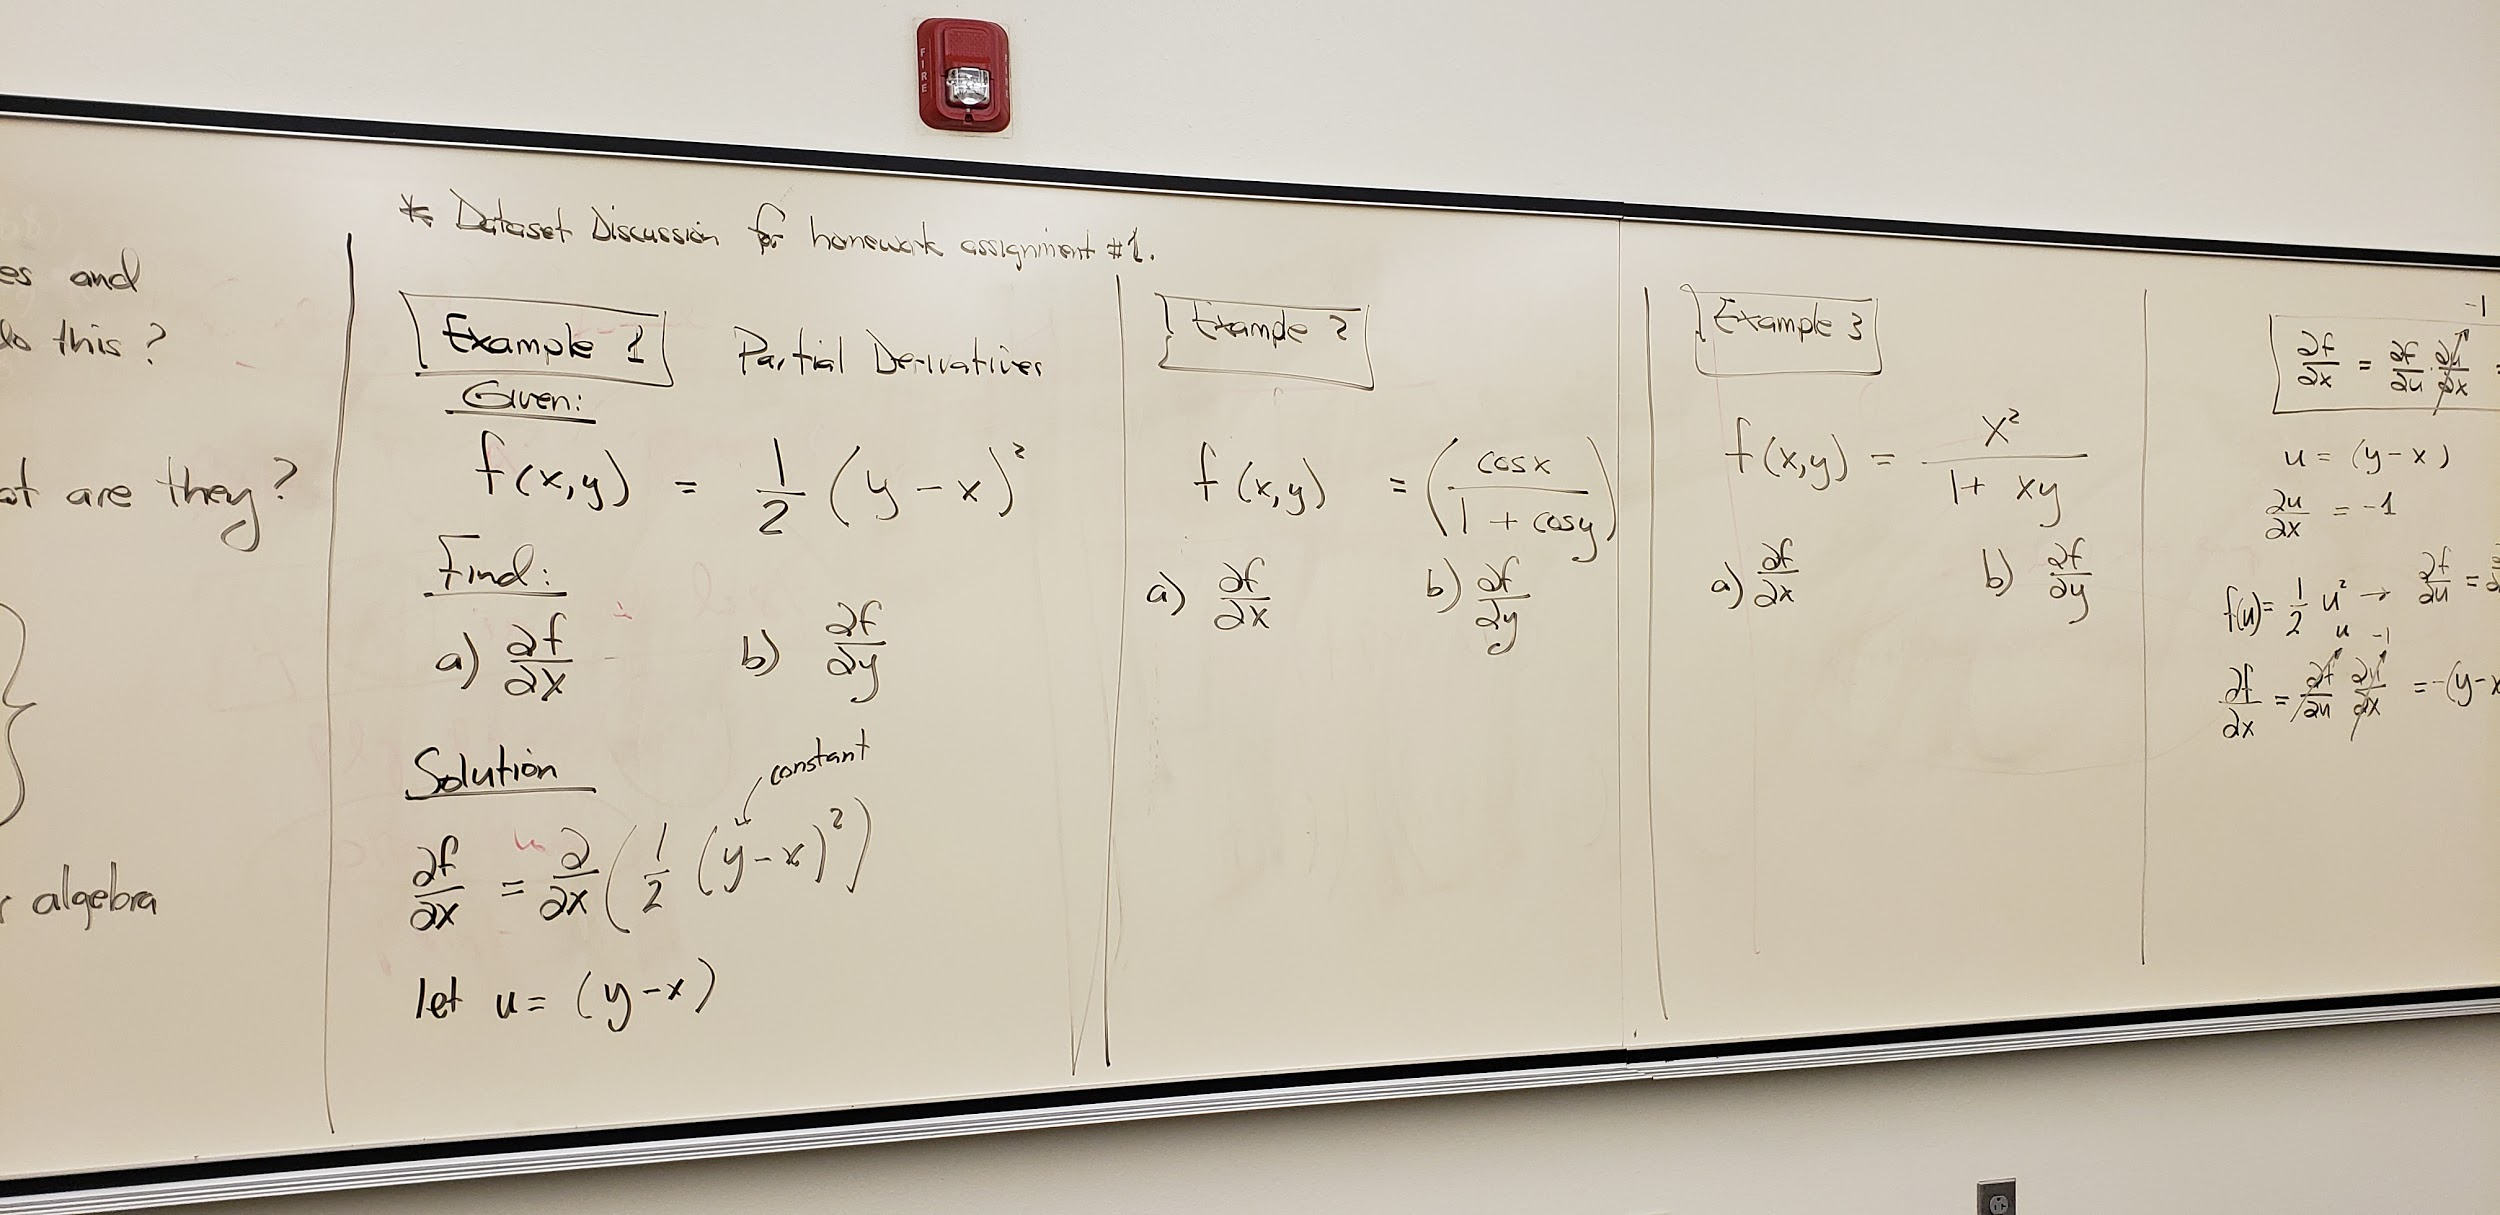 FIRE
es and
do this?
at are they?
algebra
* Dataset Discussion for homework assignment #1.
Example 1 Partial Derivatives
Given:
f(x,y) = 1/2 (y-x)²
Find:
a) ∂f/∂x b) ∂f/∂y
Solution
constant
∂f/∂x = ∂/∂x (1/2 (y-x)²)
let u = (y-x)
Example 2
f(x,y) = (cosx/(1 + cosy))
a) ∂f/∂x b) ∂f/∂y
Example 3
f(x,y) = x²/(1+ xy)
a) ∂f/∂x b) ∂f/∂y
-1
∂f/∂x = ∂f/∂u · ∂u/∂x =
u = (y-x)
∂u/∂x = -1
f(u) = 1/2 u² → ∂f/∂u =
u -1
∂f/∂x = ∂f/∂u ∂u/∂x = -(y-x